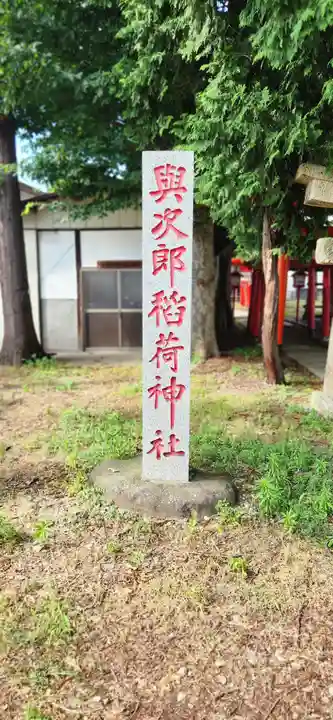 與次郎稻荷神社